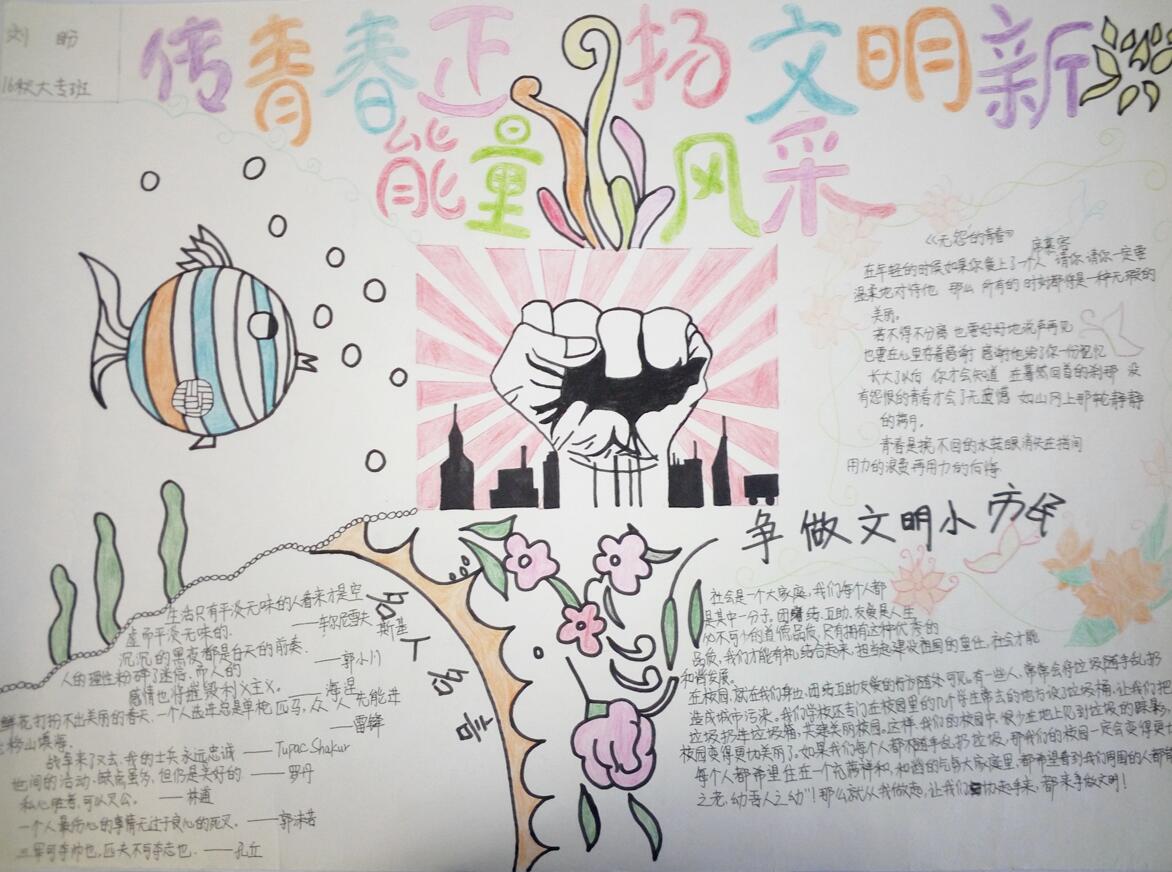 刘盼
16秋大专班
传青春正
能量
扬文明新
风采
《无怨的青春》
席慕容
在年轻的时候如果你爱上了一个人 请你请你一定要
温柔地对待他 那么 所有的时刻都将是一种无瑕的
美丽。
若不得不分离 也要好好地说声再见
也要在心里存着感谢 感谢他给了你一份记忆
长大了以后 你才会知道 在蓦然回首的刹那 没
有怨恨的青春才会了无遗憾 如山冈上那轮静静
的满月。
青春是挽不回的水 转眼消失在指间
用力的浪费 再用力的后悔
争做文明小市民
社会是一个大家庭,我们每个人都
是其中一分子,团结互助、友爱是人生
必不可少的道德品质,只有拥有这种优秀的
品质,我们才能有机结合起来,担当起建设祖国的重任,社会才能
和谐发展。
在校园,就在我们身边,团结互助友爱的行为随处可见。有一些人,常常会将垃圾随手乱扔
造成城市污染。我们学校还专门在校园里的几个学生常去的地方设了垃圾桶,让我们把
垃圾扔在垃圾箱,共建美丽校园。这样,我们的校园中,很少在地上见到垃圾的踪影,
校园变得更加美丽了。如果我们每个人都不随手乱扔垃圾,那我们的校园一定会变得更
每个人都希望住在一个充满祥和、和谐的气氛大家庭里,都希望看到我们周围的人都
之老,幼吾人之幼”!那么就从我做起,让我们协起手来,都来争做文明!
名人名言
生活只有平淡无味的人看来才是空
虚而平淡无味的. ——车尔尼雪夫
斯基
沉沉的黑夜都是白天的前奏. ——郭小川
人的理性粉碎了迷信,而人的
感情也将摧毁利义主义。——海涅
鲜花打扮不出美丽的春天,一个人先进总是单枪匹马,众人先进
才能移山填海。 ——雷锋
战争来了又去,我的士兵永远忠诚 ——Tupac Shakur
世间的活动,缺点虽多,但仍是美好的 ——罗丹
私心胜者,可以灭公。 ——林逋
一个人最伤心的事情无过于良心的死灭. ——郭沫若
三军可夺帅也,匹夫不可夺志也. ——孔丘